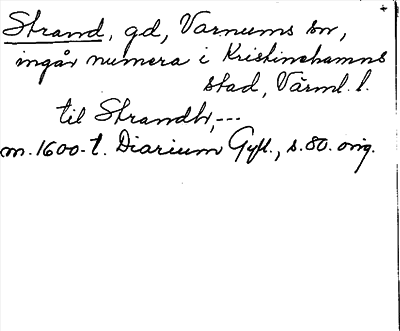 Strand, gd, Varnums sn,
ingår numera i Kristinehamns
stad, Värml. l.
til Strandh, ---
m. 1600-t. Diarium Gyll., s. 80. orig.